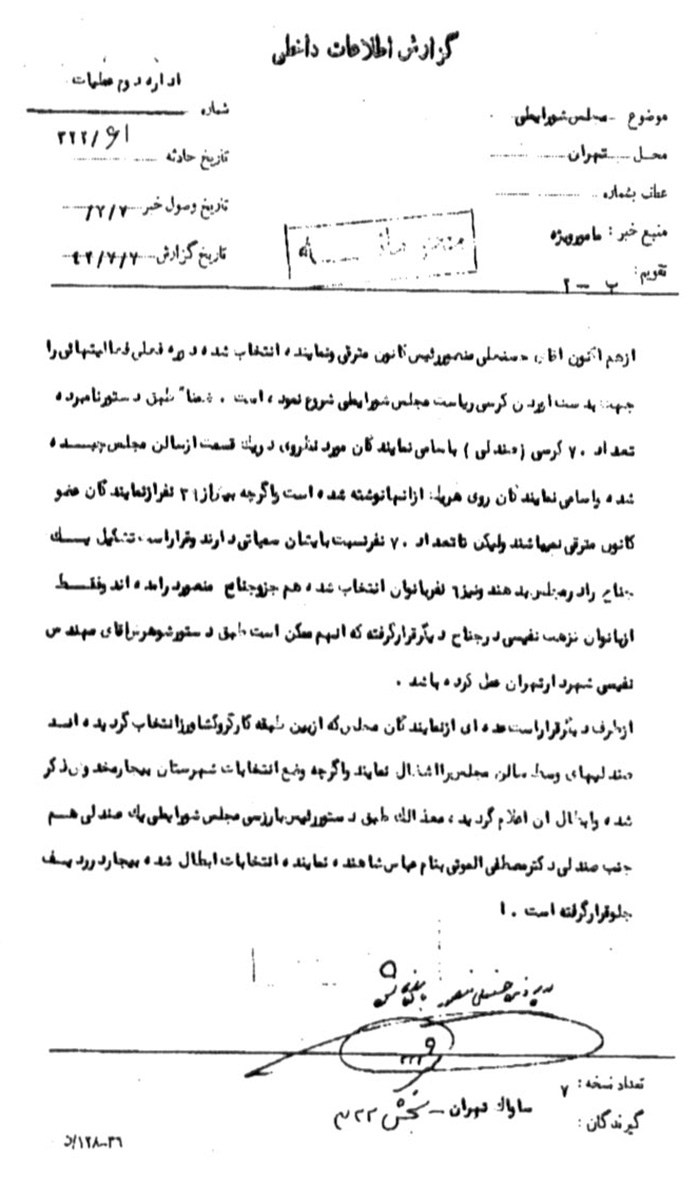 گزارش اطلاعات داخلی
اداره دوم عملیات
شماره
۳۲۲/
موضوع مجلس شورایملی
محل تهران
تاریخ حادثه
عطف بشماره
تاریخ وصول خبر ۷/۲/
منبع خبر : مامور ویژه
تاریخ گزارش ۴۲/۷/۷
تقویم : ب - ۲
ازهم اکنون اقای حسنعلی منصور رئیس کانون مترقی ونماینده انتخاب شده دوره فعلی فعالیتهائی را
جهت بدست اوردن کرسی ریاست مجلس شورایملی شروع نموده است . ضمنا" طبق دستور نامبرده
تعداد ۷۰ کرسی (صندلی ) باسامی نمایندگان مورد نظر وی دریک قسمت ازسالن مجلس چیده
شده واسامی نمایندگان روی هریک ازانها نوشته شده است واگرچه بیش از نفرازنمایندگان عضو
کانون مترقی نمیباشند ولیکن تاتعداد ۷۰ نفرنسبت بایشان سمپاتی دارند وقراراست تشکیل یک
جناح رادرمجلس بدهند ونیز ٦ نفربانوان انتخاب شده هم جزوجناح منصور درامده اند وفقط
ازبانوان نزهت نفیسی درجناح دیگرقرارگرفته که انهم ممکن است طبق دستورشوهرش اقای مهندس
نفیسی شهردارتهران عمل کرده باشد .
ازطرف دیگرقراراست عده ای ازنمایندگان مجلس که ازبین طبقه کارگروکشاورزانتخاب گردیده اند
صندلیهای وسط سالن مجلس رااشغال نمایند واگرچه وضع انتخابات شهرستان بیجارمخدوش ذکر
شده وابطال ان اعلام گردید ، معذالک طبق دستور رئیس بازرسی مجلس شورایملی یک صندلی هم
جنب صندلی دکترمصطفی الموتی بنام عباس شاهنده نماینده انتخابات ابطال شده بیجار درردیف
جلوقرارگرفته است . ا
حسنعلی منصور
تعداد نسخه : ۷
گیرندگان :
ساواک تهران - بخش ۳۲۲
۱۲۸-۳۶/د